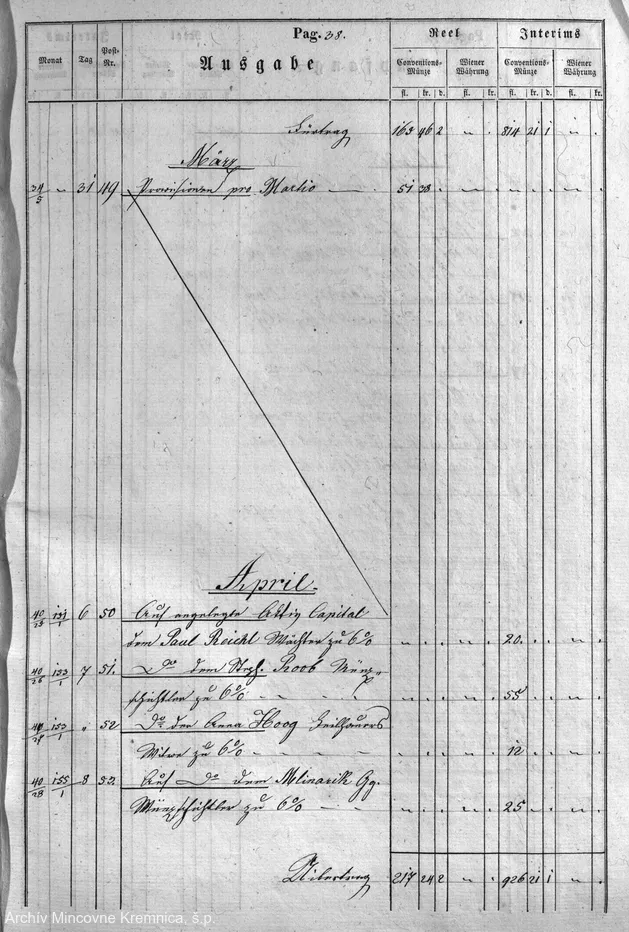 Pag. 38.
Ausgabe
Reel
Interims
Monat
Tag
Post-Nr.
Conventions-Münze
Wiener Währung
Conventions-Münze
Wiener Währung
fl. kr. d. fl. kr. fl. kr. d. fl. kr.
Fürtrag 163 46 2 " . 814 21 1 " .
März
31 49 Provisionen pro Martio 51 38
April.
40/25 131/1 6 50 Auf angelegte Aktiv Capital
dem Paul Reichl Wächter zu 6% 20
40/26 133/1 7 51. Do dem Steph. Roob Münz-
schichtler zu 6% 55
153/1 " 52 Do der Anna Hoog Zeilhauers
Witwe zu 6% 12
40/28 155/1 8 53. Auf Do dem Mlinarik Gg.
Münzschichtler zu 6% 25
Übertrag 217 24 2 " . 926 21 1 " .
Archív Mincovne Kremnica, š.p.